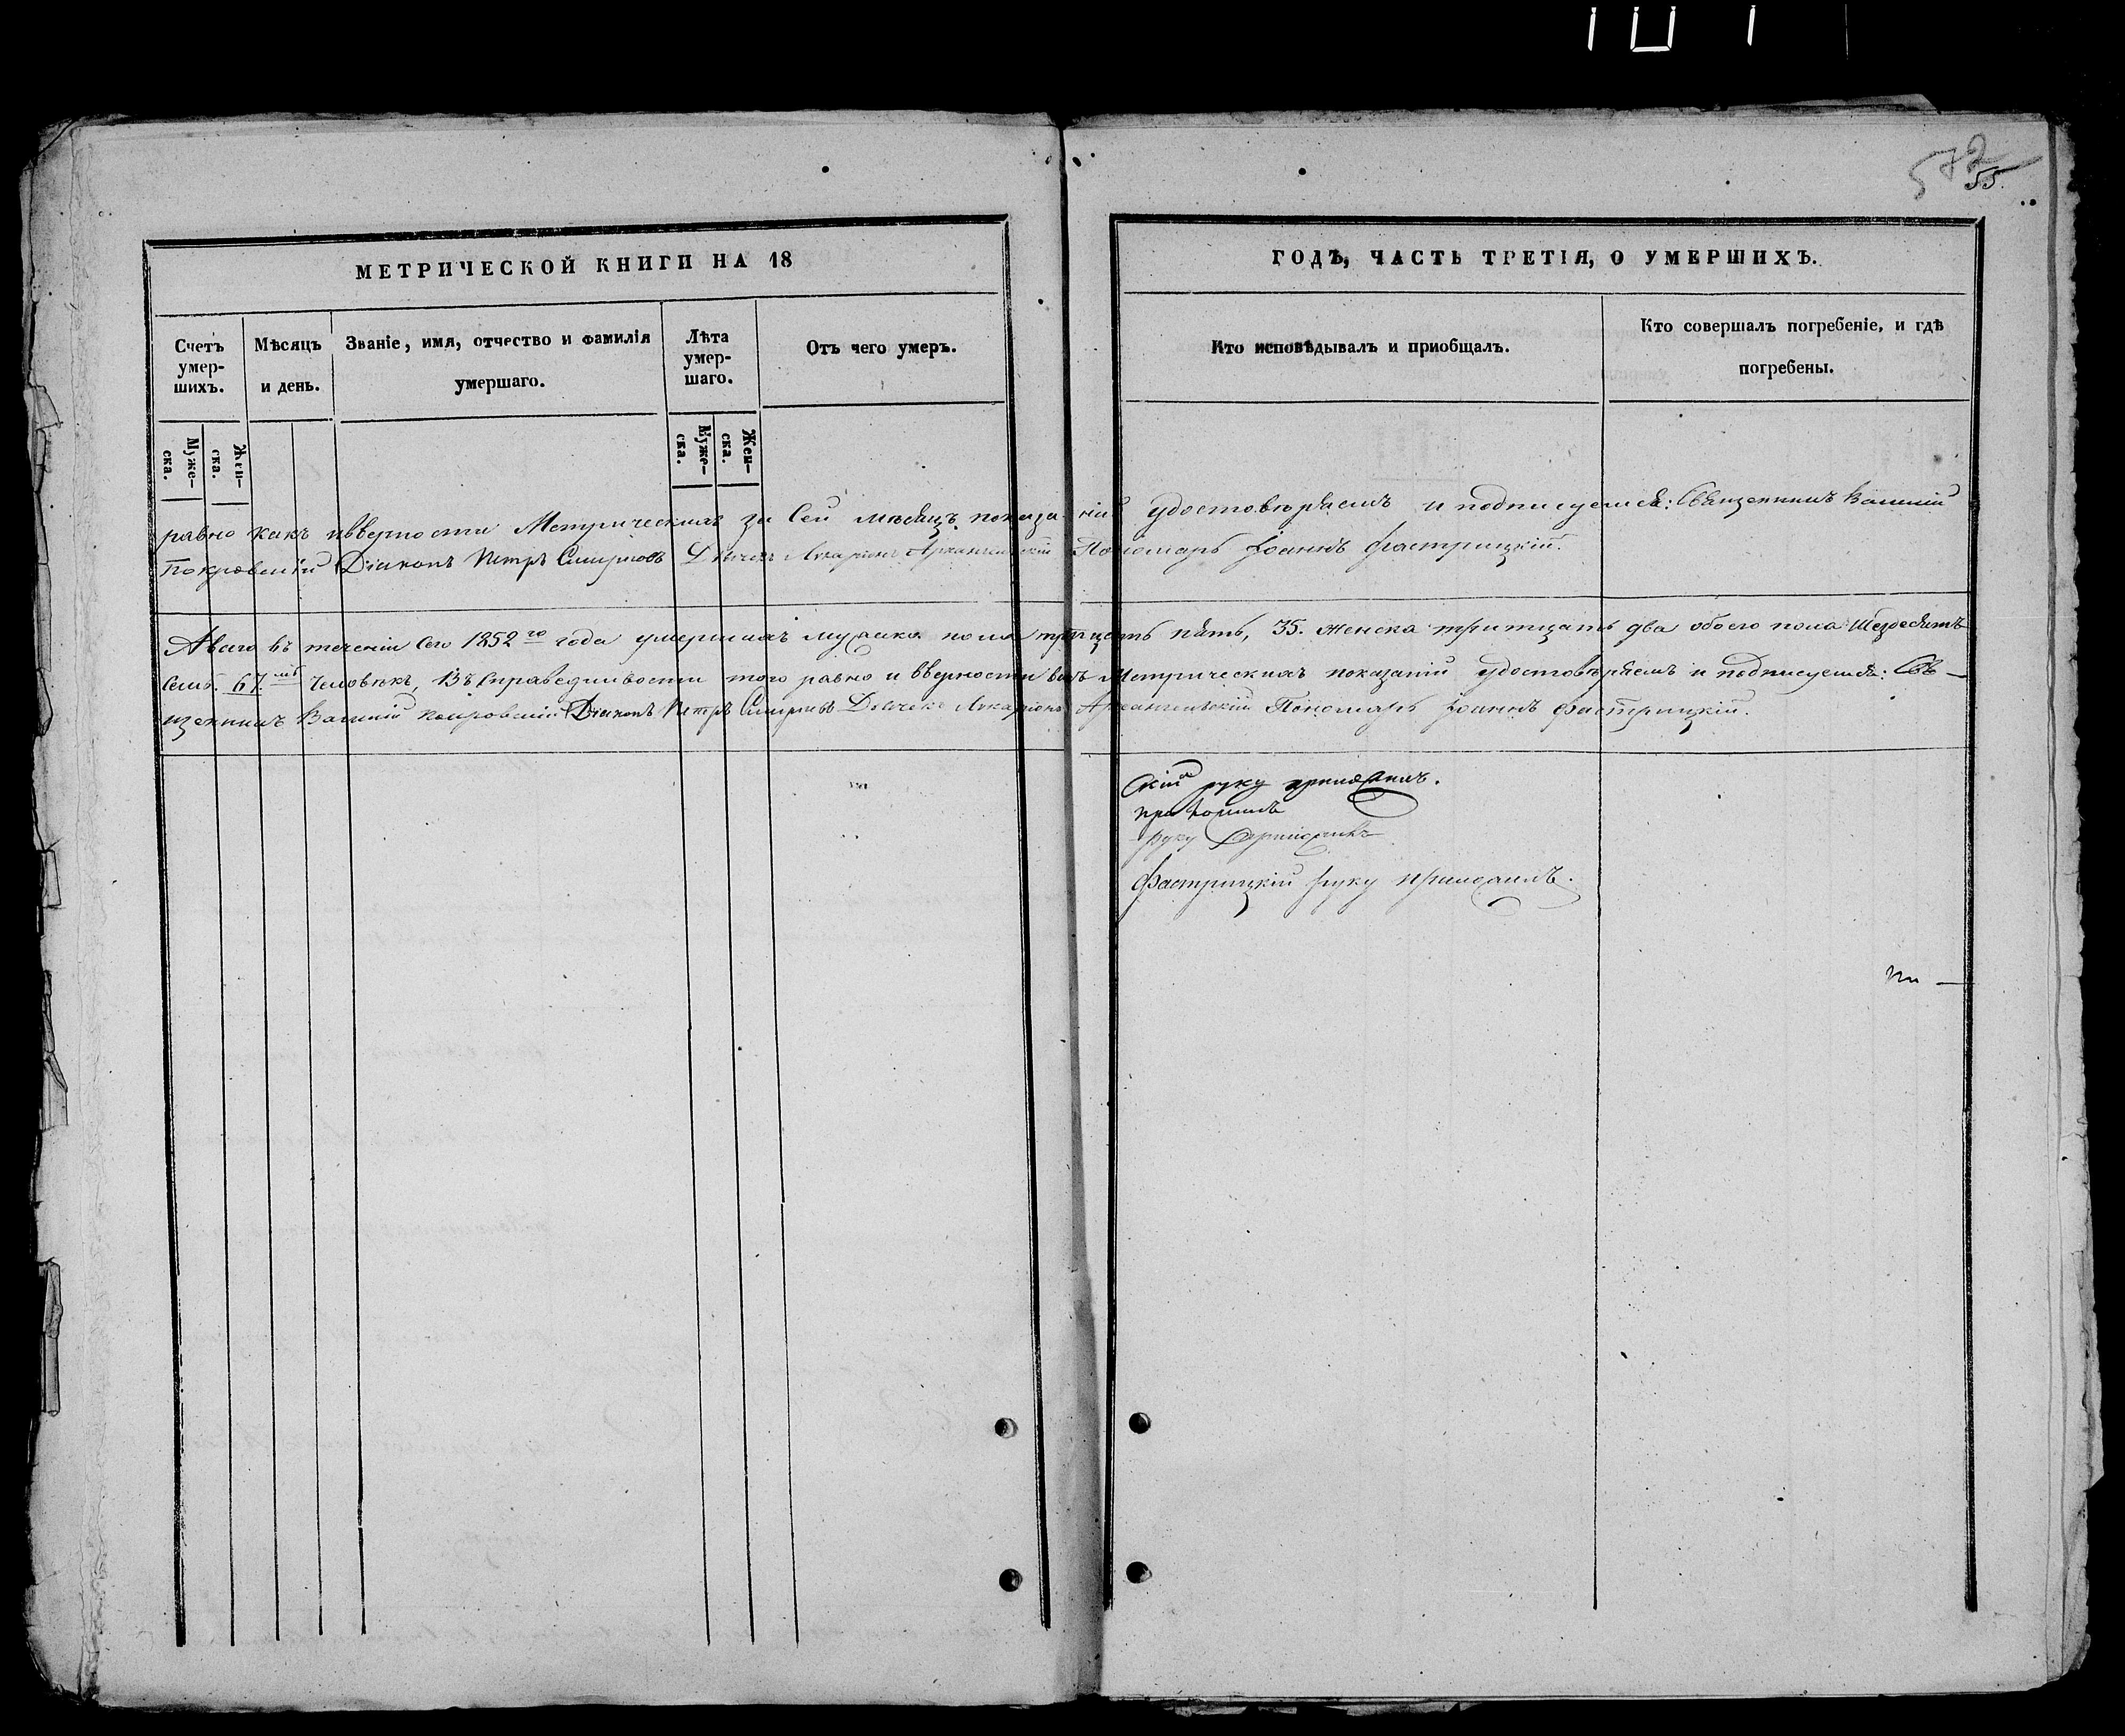 101
572
55.
МЕТРИЧЕСКОЙ КНИГИ НА 18
ГОДЪ, ЧАСТЬ ТРЕТІЯ, О УМЕРШИХЪ.
Счетъ умер-шихъ.
Мѣсяцъ и день.
Званіе, имя, отчество и фамилія умершаго.
Лѣта умер-шаго.
Отъ чего умеръ.
Кто исповѣдывалъ и приобщалъ.
Кто совершалъ погребеніе, и гдѣ погребены.
Муже-ска.
Жен-ска.
Муже-ска.
Жен-ска.
равно какъ и вверности Метрическихъ за Сей мѣсяцъ показаній удостовѣряемъ и подписуемся: Священникъ Василій
Покровскій Діаконъ Петръ Смирновъ Дьячекъ Иларіонъ Архангельскій Пономарь Іоаннъ Фастрицкій.
А всего въ теченіи сего 1852го года умершихъ мужска пола тритцать пять, 35. женска тритцать два обоего пола Шездесятъ
семь. 67.мь Человѣкъ, Въ справедливости того равно и вверности всѣхъ Метрическихъ показаній удостовѣряемъ и подписуемся: Свя-
щенникъ Василій Покровскій Діаконъ Петръ Смирновъ Дьячекъ Иларіонъ Архангельскій Пономарь Іоаннъ Фастрицкій.
скій руку приложилъ.
приложилъ
руку приложилъ
Фастрицкій руку приложилъ.